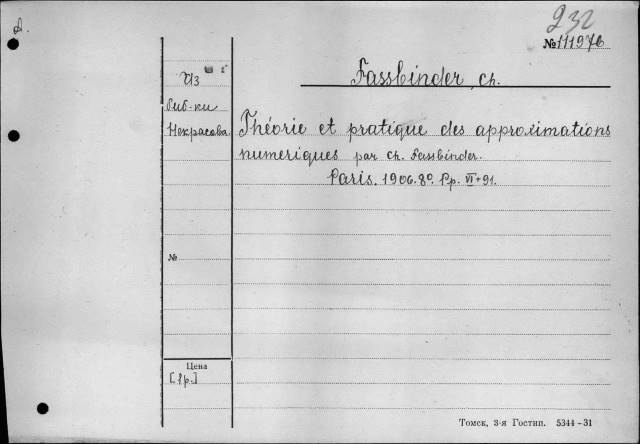 232
№ 111976
Из
биб-ки
Некрасова.
Fassbinder, Ch.
Théorie et pratique des approximations
numeriques par Ch. Fassbinder.
Paris. 1906. 8º. Pp. VI+91.
№
Цена
[1р.]
Томск, 3-я Гостип. 5344-31